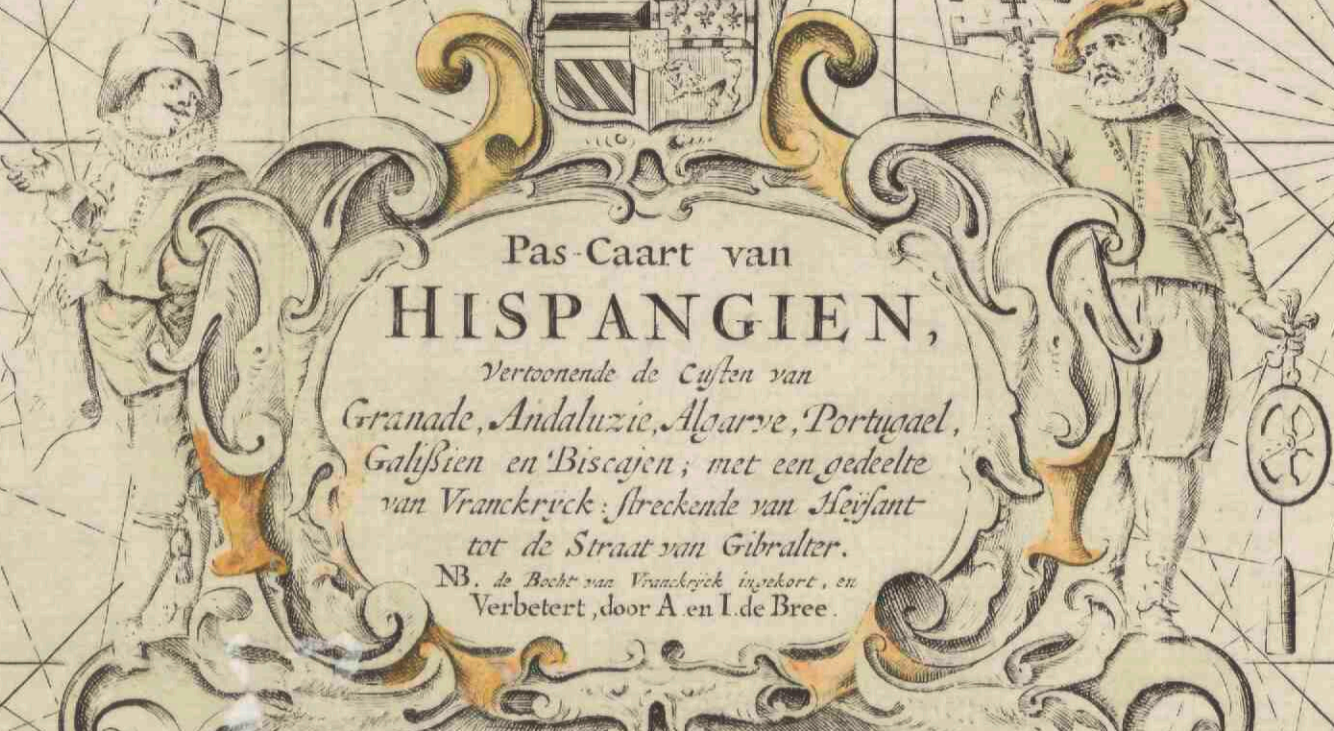 Pas-Caart van
HISPANGIEN,
Vertoonende de Custen van
Granade, Andaluzie, Algarve, Portugael,
Galißien en Biscajen; met een gedeelte
van Vranckryck: streckende van Heÿsant
tot de Straat van Gibralter.
NB. de Bocht van Vranckrÿck ingekort, en
Verbetert, door A. en I. de Bree.